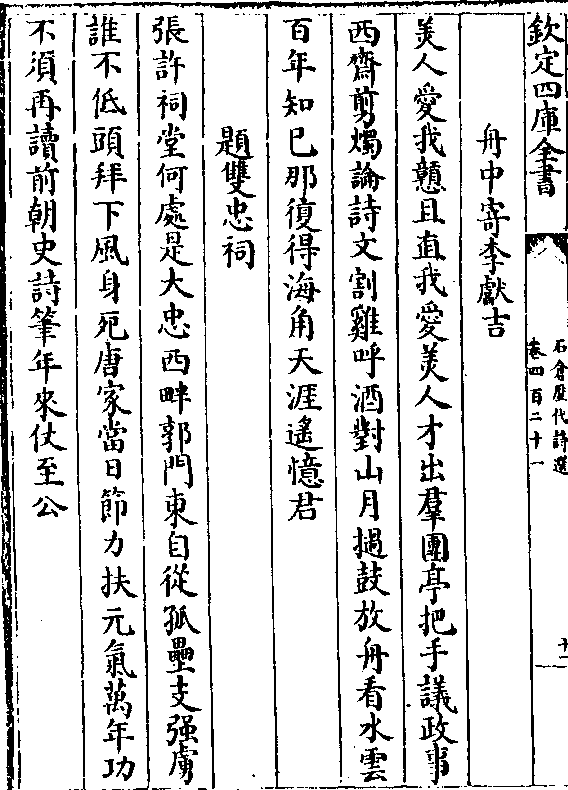 欽定四庫全書
石倉歷代詩選
卷四百二十一
十二
舟中寄李獻吉
美人愛我戇且直我愛美人才出羣團亭把手議政事
西齋剪燭論詩文割雞呼酒對山月撾鼓放舟看水雲
百年知已那復得海角天涯遙憶君
題雙忠祠
張許祠堂何處是大忠西畔郭門東自從孤壘支强虜
誰不低頭拜下風身死唐家當日節力扶元氣萬年功
不須再讀前朝史詩筆年來仗至公